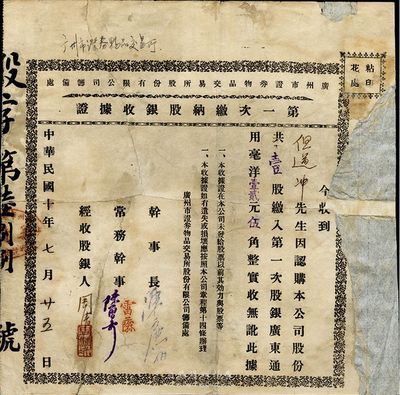 廣州市證券物品交易所股份有限公司籌備處
第一次繳納股銀收據證
粘印
花處
今收到
但道冲先生因認購本公司股份
共壹股繳入第一次股銀廣東通
用毫洋壹貳元伍角整實收無訛此據
一、本收據證在本公司未發給股票以前其効力與股票等
一、本收據證如有遺失或損壞應按照本公司章程第十四條辦理
廣州市證券物品交易所股份有限公司籌備處
幹事長
常務幹事
經收股銀人
中華民國十年七月廿五日
股字第
號